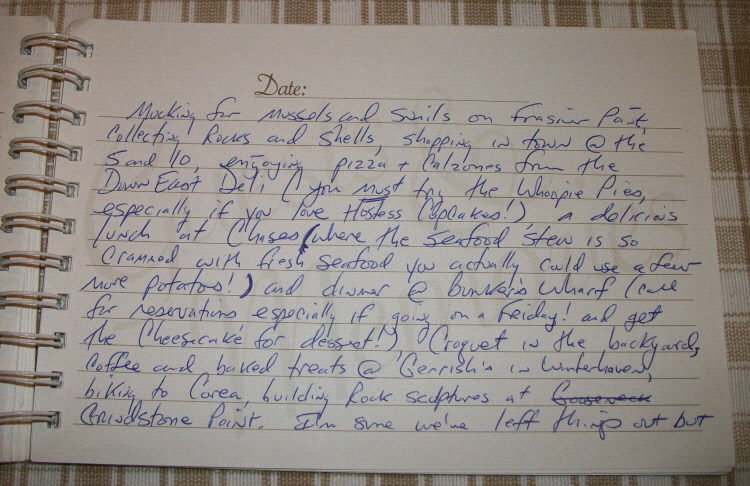 Date:
Mucking for mussels and snails on Frasier Point,
Collecting Rocks and shells, shopping in town @ the
5 and 10, enjoying pizza + Calzones from the
Down East Deli (you must try the Whoopie Pies,
especially if you love Hostess Cupcakes!) a delicious
lunch at Chases (where the Seafood Stew is so
Crammed with fresh seafood you actually could use a few
more potatoes!) and dinner @ Bunkers Wharf (call
for reservations especially if going on a Friday! and get
the Cheesecake for dessert!), Croquet in the backyard,
Coffee and baked treats @ Gerrish's in Winterhaven,
biking to Corea, building Rock sculptures at Gooseneck
Grindstone Point. I'm sure we've left things out but